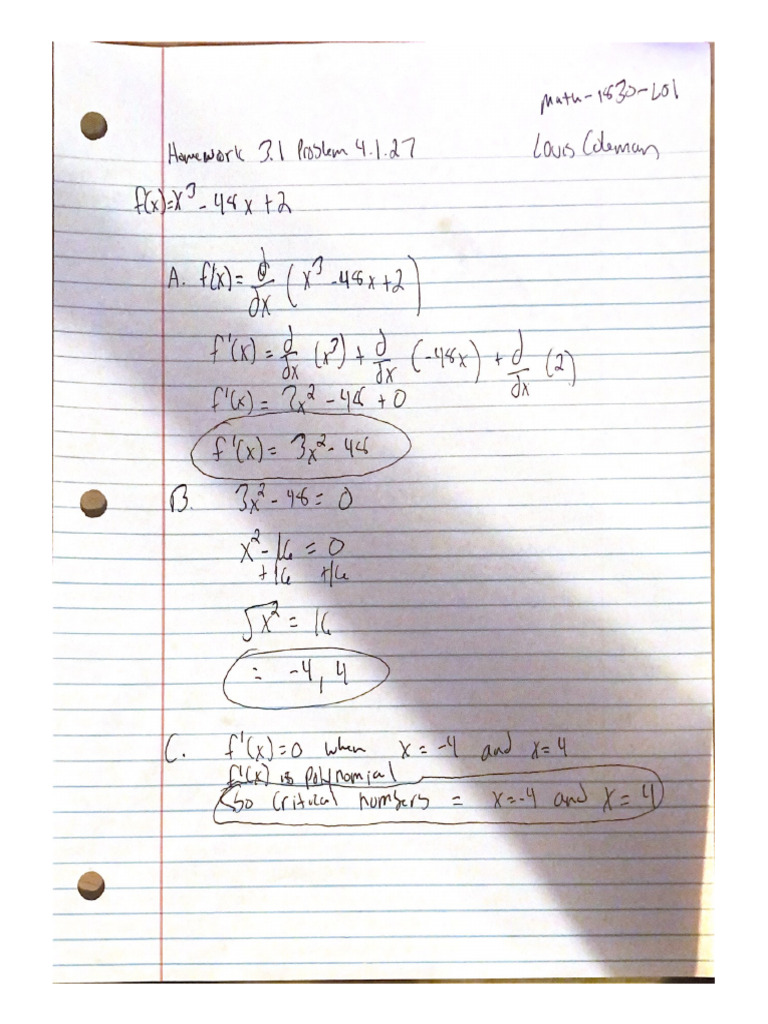 Math-1830-L01
Homework 3.1 Problem 4.1.27 Louis Coleman
f(x)=x³-48x+2
A. f'(x)= d/dx (x³-48x+2)
f'(x) = d/dx (x³) + d/dx (-48x) + d/dx (2)
f'(x) = 3x² - 48 + 0
f'(x) = 3x² - 48
B. 3x² - 48 = 0
x² - 16 = 0
+16 +16
√x² = 16
= -4, 4
C. f'(x)=0 when x = -4 and x=4
f'(x) is polynomial
So critical numbers = x=-4 and x=4